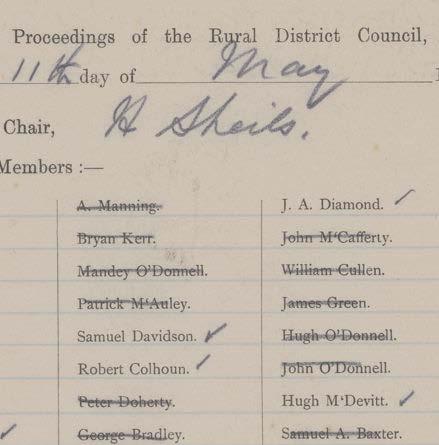 Proceedings of the Rural District Council,
11th day of May
Chair, H Sheils.
Members :—
A. Manning.
Bryan Kerr.
Mandey O'Donnell.
Patrick M'Auley.
Samuel Davidson. ✓
Robert Colhoun. ✓
Peter Doherty.
George Bradley.
J. A. Diamond. ✓
John M'Cafferty.
William Cullen.
James Green.
Hugh O'Donnell.
John O'Donnell.
Hugh M'Devitt. ✓
Samuel A. Baxter.